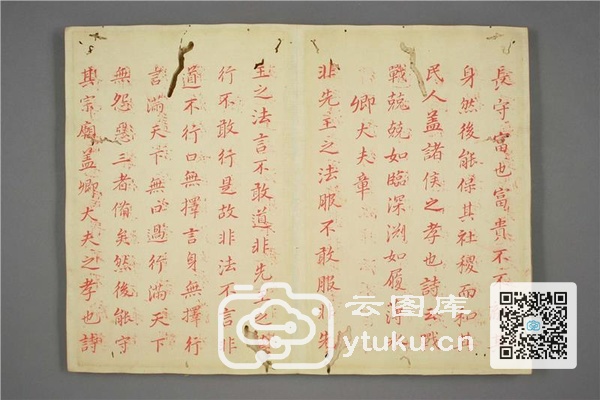 長守富也富貴不
身然後能保其社稷而和其
民人蓋諸侯之孝也詩云戰
戰兢兢如臨深淵如履薄
卿大夫章
非先王之法服不敢服 先
王之法言不敢道非先王之
行不敢行是故非法不言非
道不行口無擇言身無擇行
言滿天下無口過行滿天下
無怨惡三者備矣然後能守
其宗廟蓋卿大夫之孝也詩
云图库
ytuku.cn